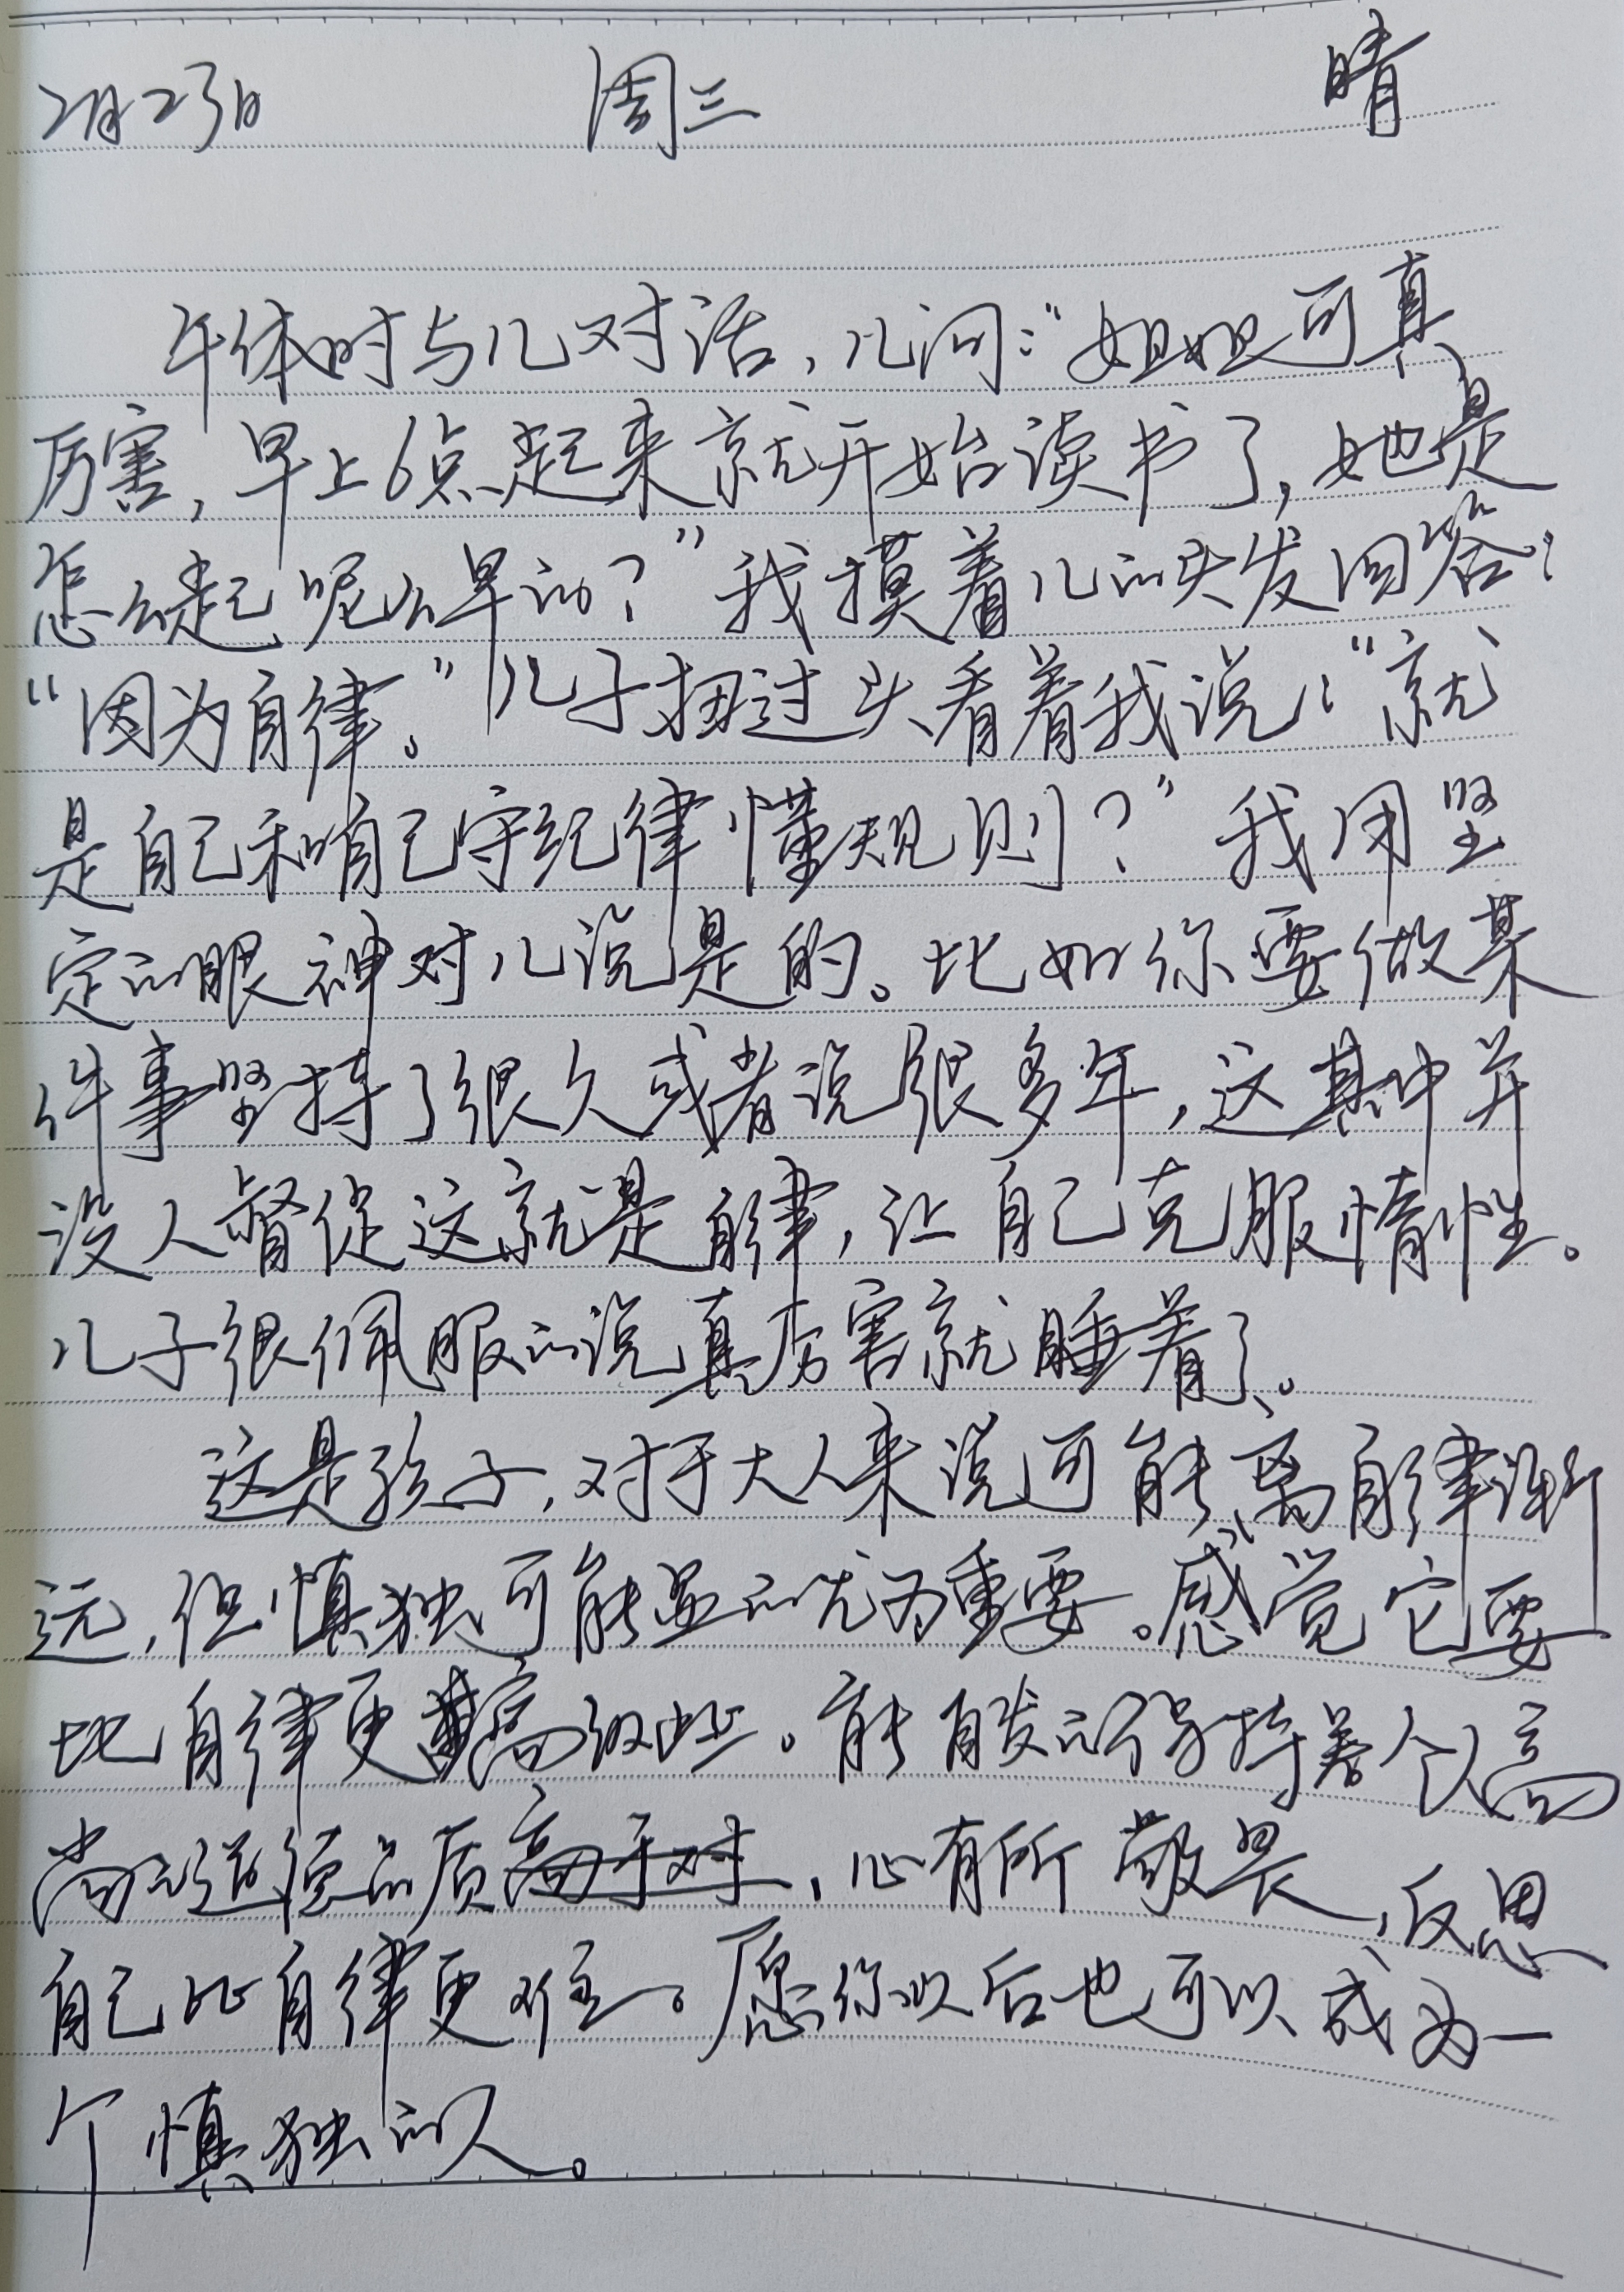 2月23日 周三 晴
午休时与儿对话，儿问：“姐姐可真
厉害，早上6点起来就开始读书了，她是
怎么起呢么早的？”我摸着儿的头发回答：
“因为自律。”儿子扭过头看着我说：“就
是自己和咱己守纪律懂规则？”我用坚
定的眼神对儿说是的。比如你要做某
件事坚持了很久或者说很多年，这其中并
没人督促这就是自律，让自己克服惰性。
儿子很佩服的说真厉害就睡着了。
这是孩子，对于大人来说可能离自律渐
远，但慎独可能显的尤为重要。感觉它要
比自律更高级些。能自发的保持着个人高
尚道德品质，心有所敬畏，反思
自己比自律更难。愿你以后也可以成为一
个慎独的人。